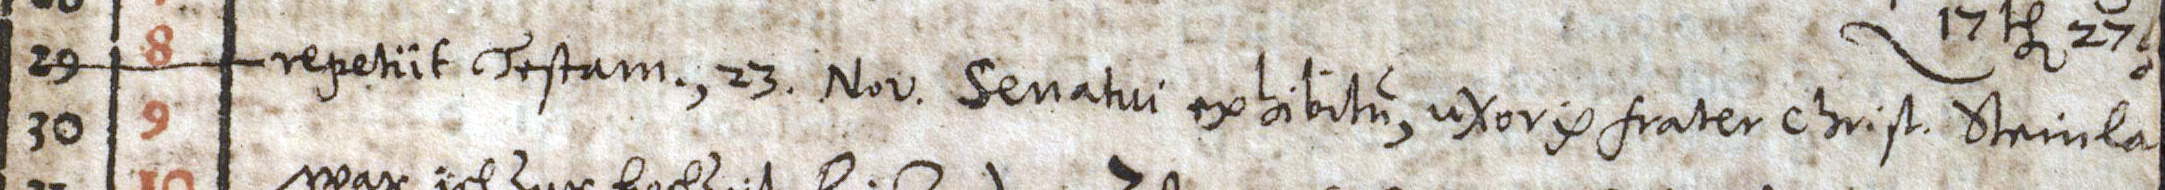 17 th 27
29 8 repetiit Testam., 23. Nov. Senatui exhibitū, uxoris frater Christ. Steinla
30 9
10 war ich zur hochzeit